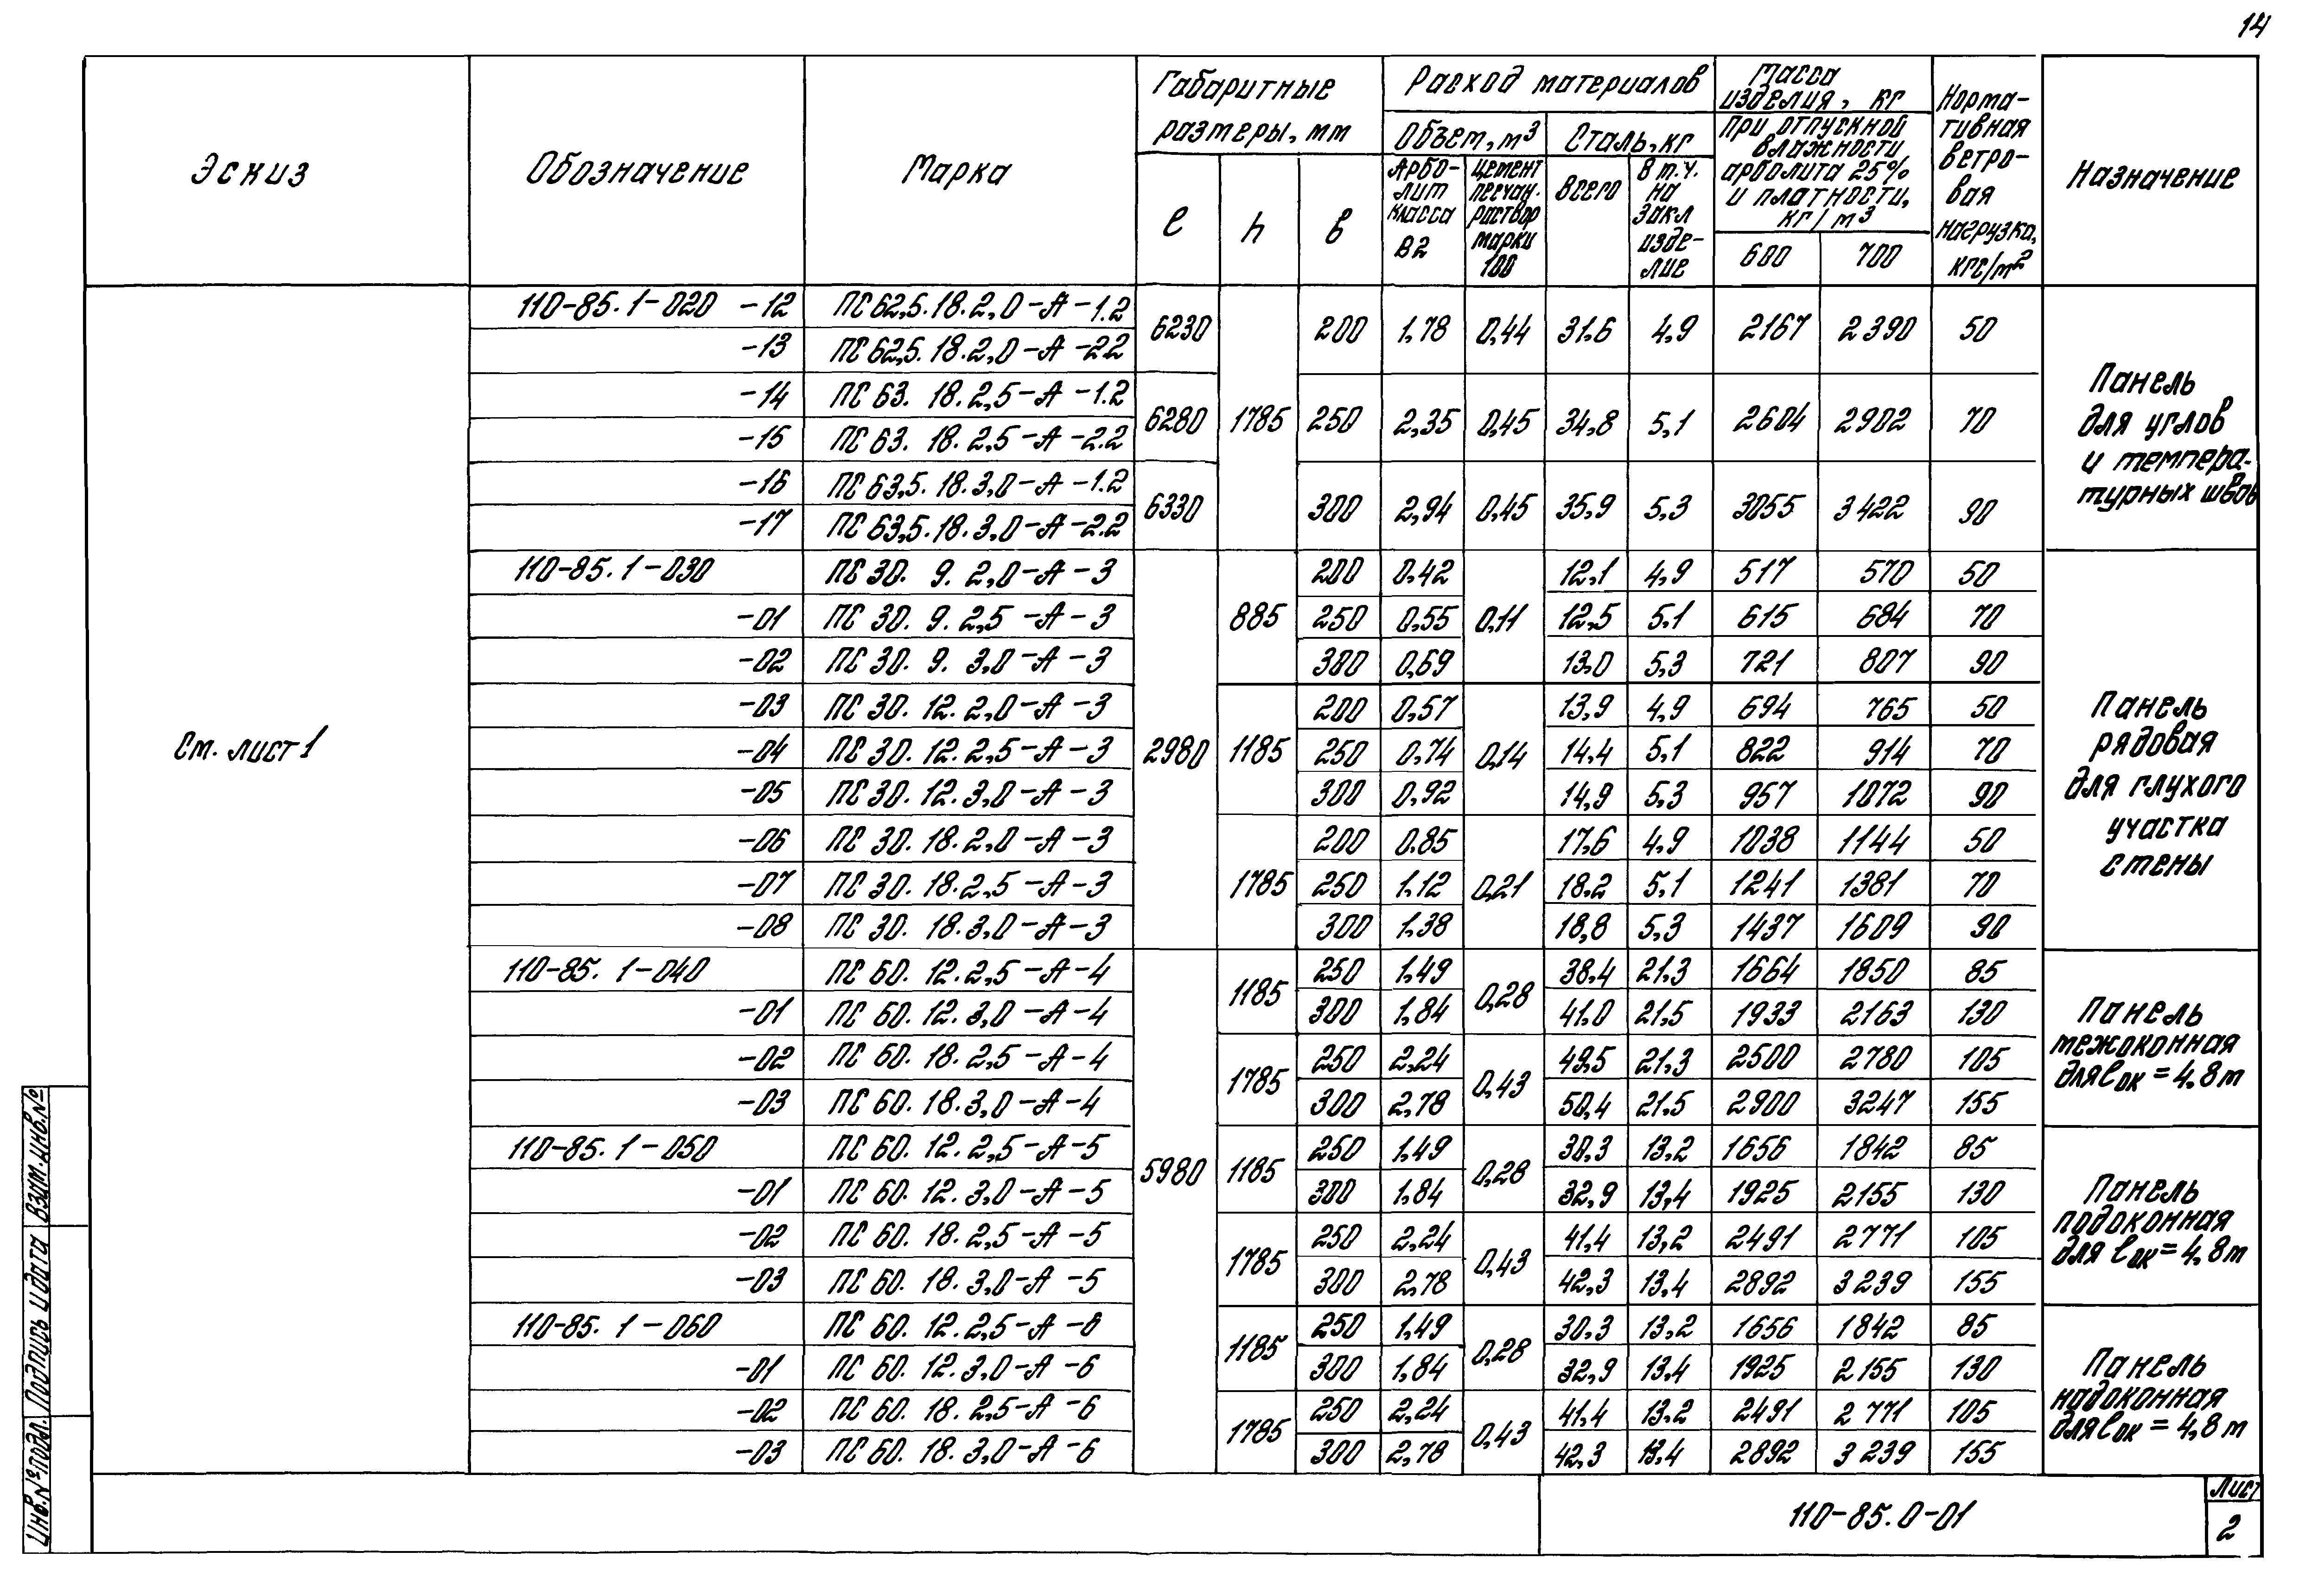 14
Эскиз
Обозначение
Марка
Габаритные
размеры, мм
Расход материалов
Масса
изделия, кг
Норма-
тивная
ветро-
вая
нагрузка,
кгс/м²
Назначение
Объем, м³
Сталь, кг
при отпускной
влажности
арболита 25%
и платности,
кг/м³
ℓ
h
в
Арбо-
лит
класса
В2
цемент
песчан.
раствор
марки
100
всего
в т.ч.
на
закл
изде-
лие
600 700
См. лист 1
110-85.1-020 -12 ПС 62,5.18.2,0-А-1.2 6230 200 1,78 0,44 31.6 4,9 2167 2390 50
-13 ПС 62,5.18.2,0-А-2.2
-14 ПС 63. 18. 2,5-А-1.2 6280 1785 250 2,35 0,45 34,8 5,1 2604 2902 70
-15 ПС 63. 18. 2,5-А-2.2
-16 ПС 63,5. 18. 3,0-А-1.2 6330 300 2,94 0,45 35,9 5,3 3055 3422 90
-17 ПС 63,5.18.3,0-А-2.2
Панель
для углов
и темпера-
турных швов
110-85.1-030 ПС 30. 9. 2,0-А-3 200 0,42 12,1 4,9 517 570 50
-01 ПС 30. 9. 2,5-А-3 885 250 0,55 0,11 12,5 5,1 615 684 70
-02 ПС 30. 9. 3,0-А-3 300 0,69 13,0 5,3 721 807 90
-03 ПС 30. 12. 2,0-А-3 200 0,57 13,9 4,9 694 765 50
-04 ПС 30. 12. 2,5-А-3 2980 1185 250 0,74 0,14 14,4 5,1 822 914 70
-05 ПС 30. 12. 3,0-А-3 300 0,92 14,9 5,3 957 1072 90
-06 ПС 30. 18. 2,0-А-3 200 0.85 17,6 4,9 1038 1144 50
-07 ПС 30. 18. 2,5-А-3 1785 250 1,12 0,21 18,2 5,1 1241 1381 70
-08 ПС 30. 18. 3,0-А-3 300 1,38 18,8 5,3 1437 1609 90
Панель
рядовая
для глухого
участка
стены
110-85. 1-040 ПС 60. 12. 2,5-А-4 1185 250 1,49 0,28 38,4 21,3 1664 1850 85
-01 ПС 60. 12. 3,0-А-4 300 1,84 41,0 21,5 1933 2163 130
-02 ПС 60. 18. 2,5-А-4 1785 250 2,24 0,43 49,5 21,3 2500 2780 105
-03 ПС 60. 18. 3,0-А-4 300 2,78 50,4 21,5 2900 3247 155
Панель
межоконная
для ℓок = 4,8м
110-85. 1-050 ПС 60. 12. 2,5-А-5 5980 1185 250 1,49 0,28 30,3 13,2 1656 1842 85
-01 ПС 60. 12. 3,0-А-5 300 1,84 32,9 13,4 1925 2155 130
-02 ПС 60. 18. 2,5-А-5 1785 250 2,24 0,43 41,4 13,2 2491 2771 105
-03 ПС 60. 18. 3,0-А-5 300 2,78 42,3 13,4 2892 3239 155
Панель
подоконная
для ℓок = 4,8м
110-85. 1-060 ПС 60. 12. 2,5-А-6 1185 250 1,49 0,28 30,3 13,2 1656 1842 85
-01 ПС 60. 12. 3,0-А-6 300 1,84 32,9 13,4 1925 2155 130
-02 ПС 60. 18. 2,5-А-6 1785 250 2,24 0,43 41,4 13,2 2491 2771 105
-03 ПС 60. 18. 3,0-А-6 300 2,78 42,3 13,4 2892 3239 155
Панель
надоконная
для ℓок = 4,8м
110-85.0-01
Лист
2
Инв.№подл. Подпись и дата Взам.инв.№